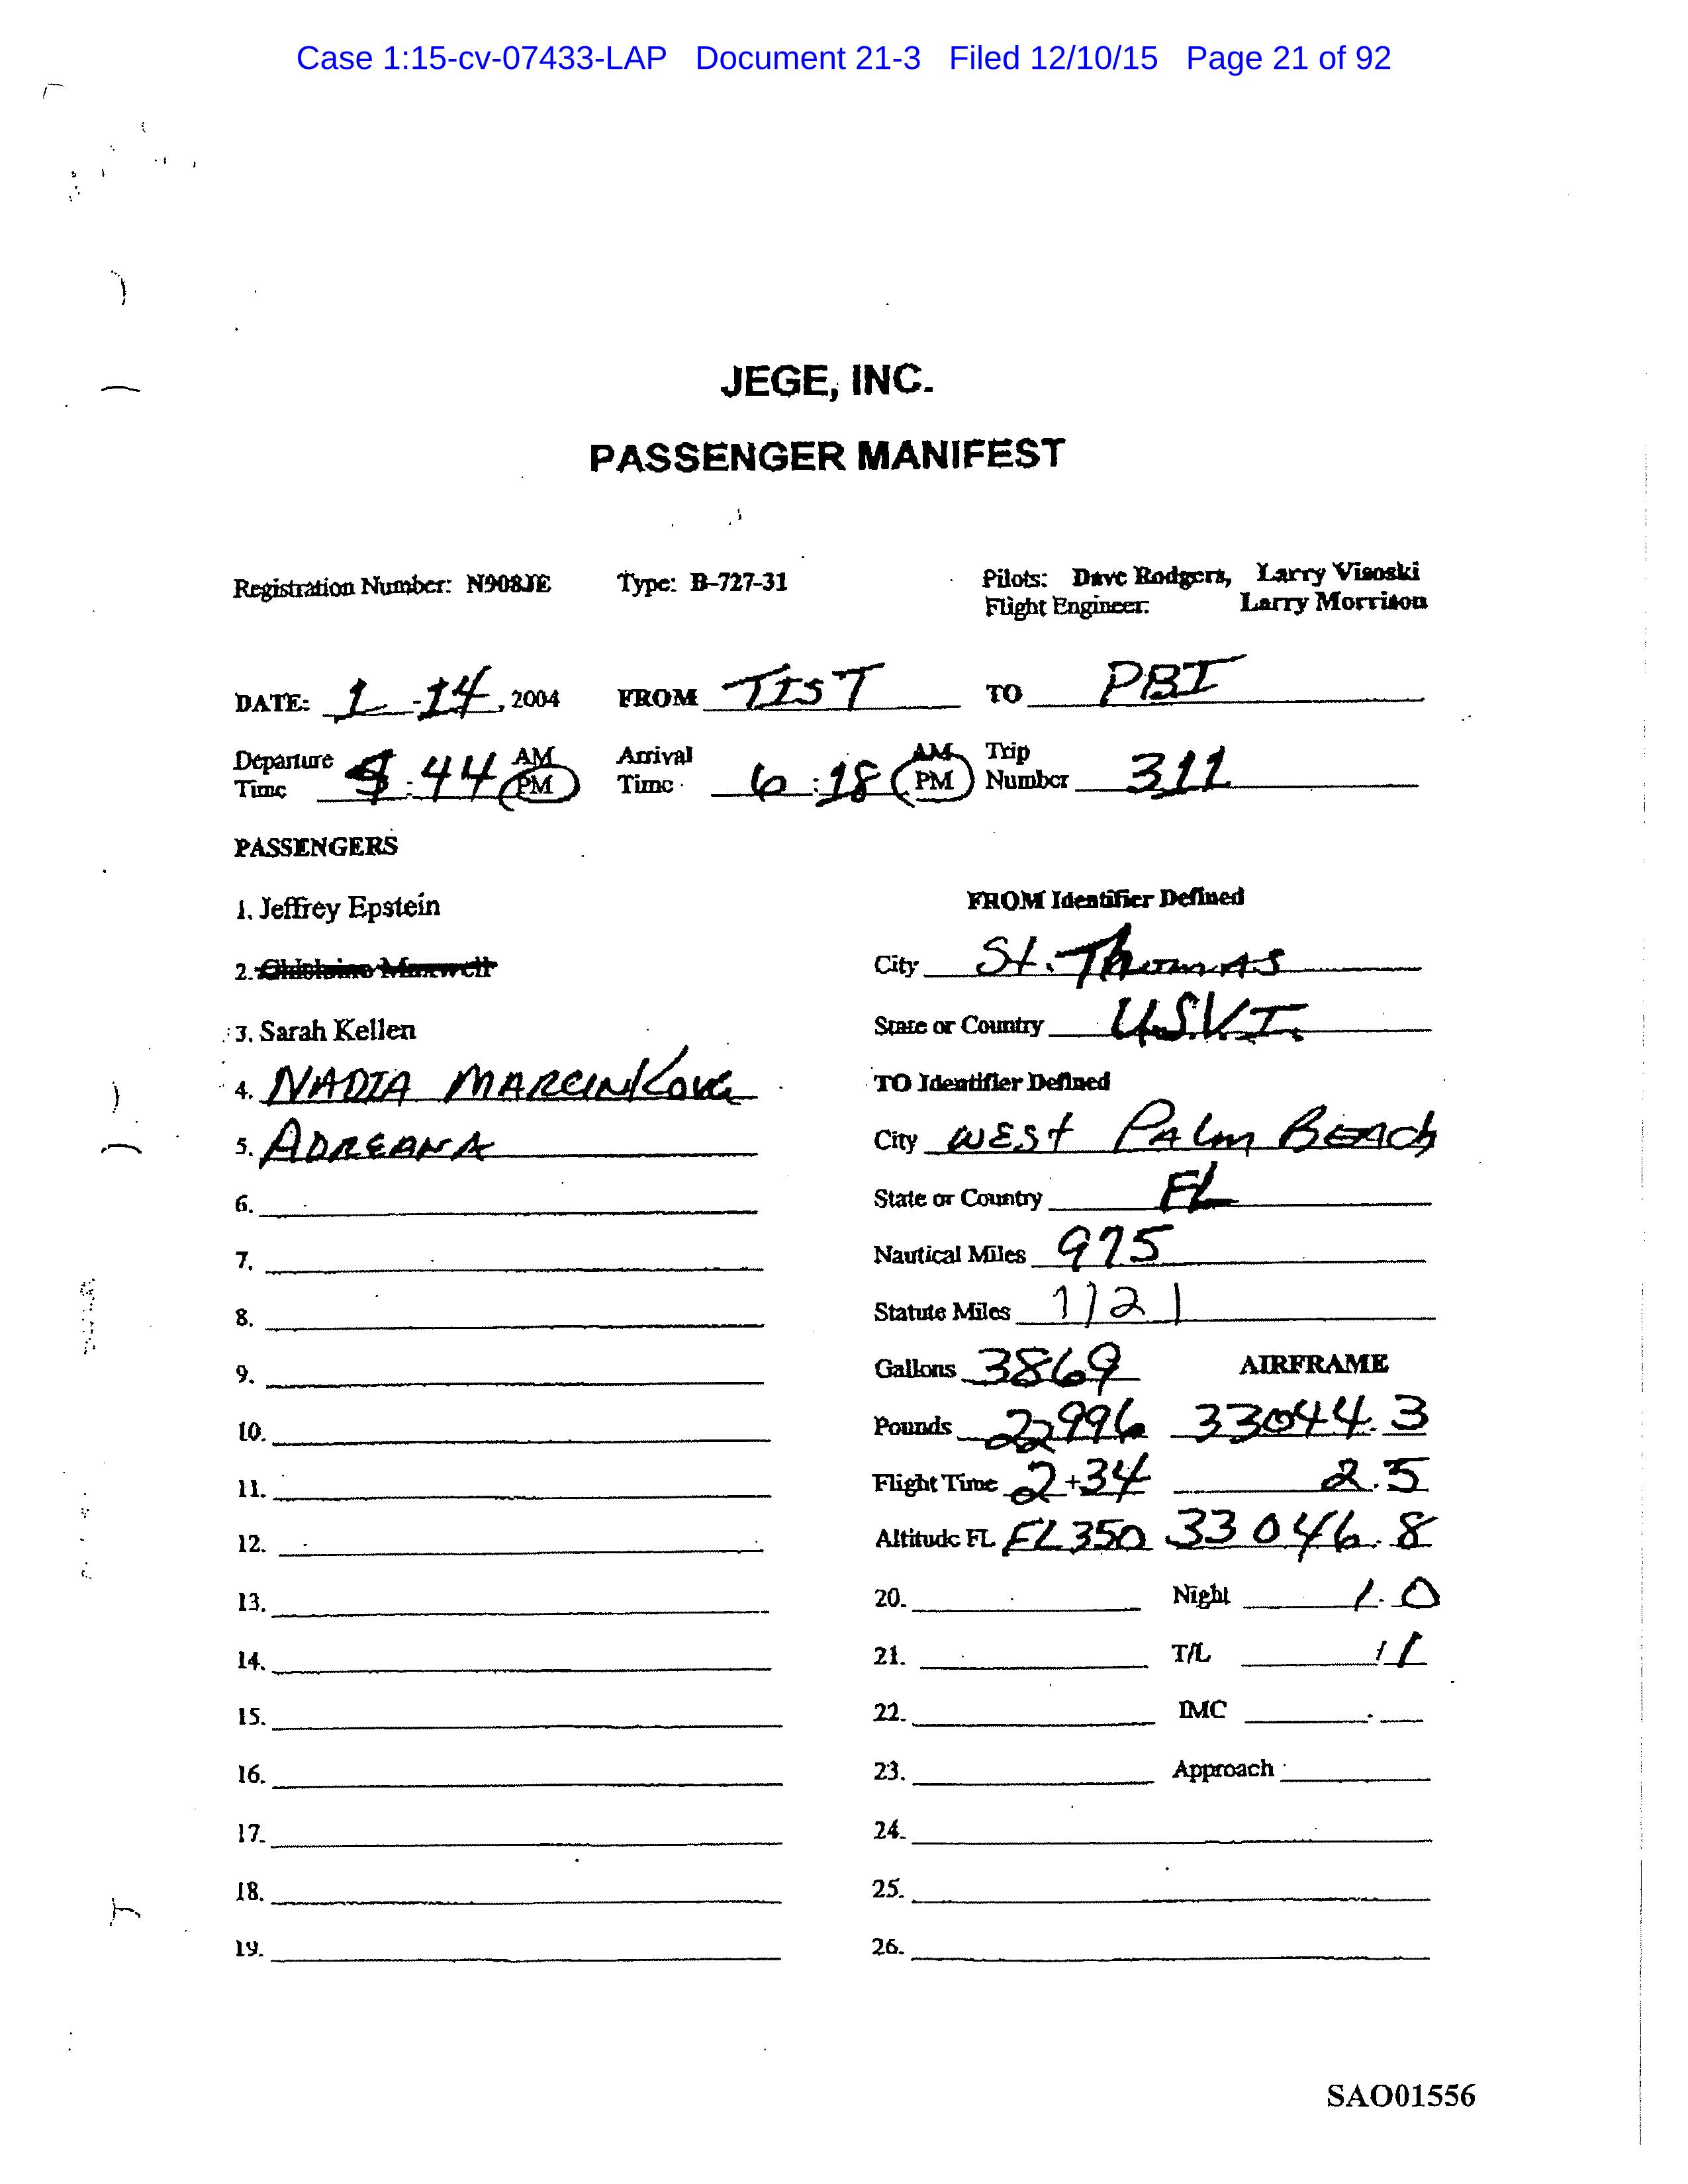 Case 1:15-cv-07433-LAP Document 21-3 Filed 12/10/15 Page 21 of 92
JEGE, INC.
PASSENGER MANIFEST
Registration Number: N908JE Type: B-727-31 Pilots: Dave Rodgers, Larry Visoski
Flight Engineer: Larry Morrison
DATE: 1-14, 2004 FROM TIST TO PBI
Departure Time :44 AM PM Arrival Time 6:18 AM PM Trip Number 311
PASSENGERS
1. Jeffrey Epstein
2. Ghislaine Maxwell
3. Sarah Kellen
4. NADIA MARCINKOVA
5. ADREANA
6.
7.
8.
9.
10.
11.
12.
13.
14.
15.
16.
17.
18.
19.
FROM Identifier Defined
City St. Thomas
State or Country U.S.V.I.
TO Identifier Defined
City WEST PALM BEACH
State or Country FL
Nautical Miles 975
Statute Miles 1121
Gallons 3869 AIRFRAME
Pounds 22996 33044.3
Flight Time 2+34 2.5
Altitude FL FL350 33046.8
20. Night 1.0
21. T/L 1/1
22. IMC .
23. Approach
24.
25.
26.
SAO01556